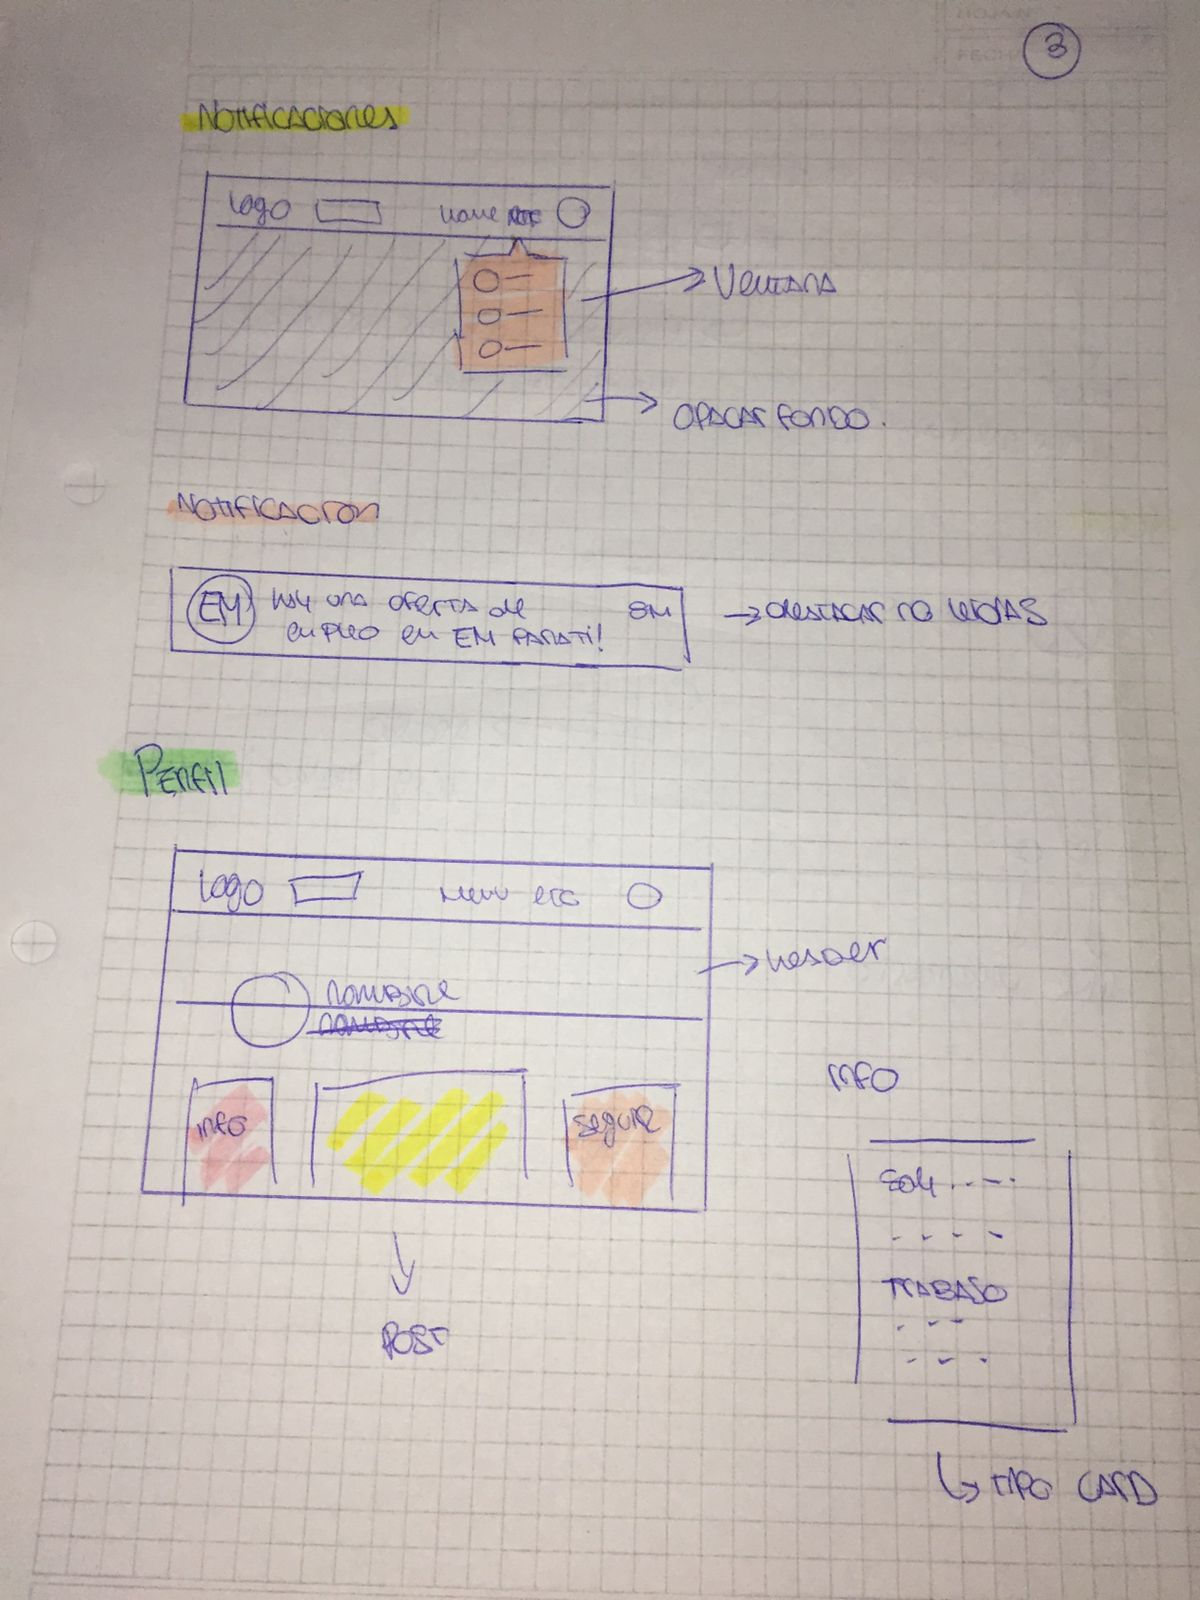 3
Notificaciones
Logo
Home
Ventana
Opacar fondo.
Notificacion
EM
Hay una oferta de
empleo en EM para ti!
8M
destacar no leidas
Perfil
Logo
Menu etc
Header
Nombre
Info
Seguir
Post
Info
Soy
Trabajo
Tipo Card